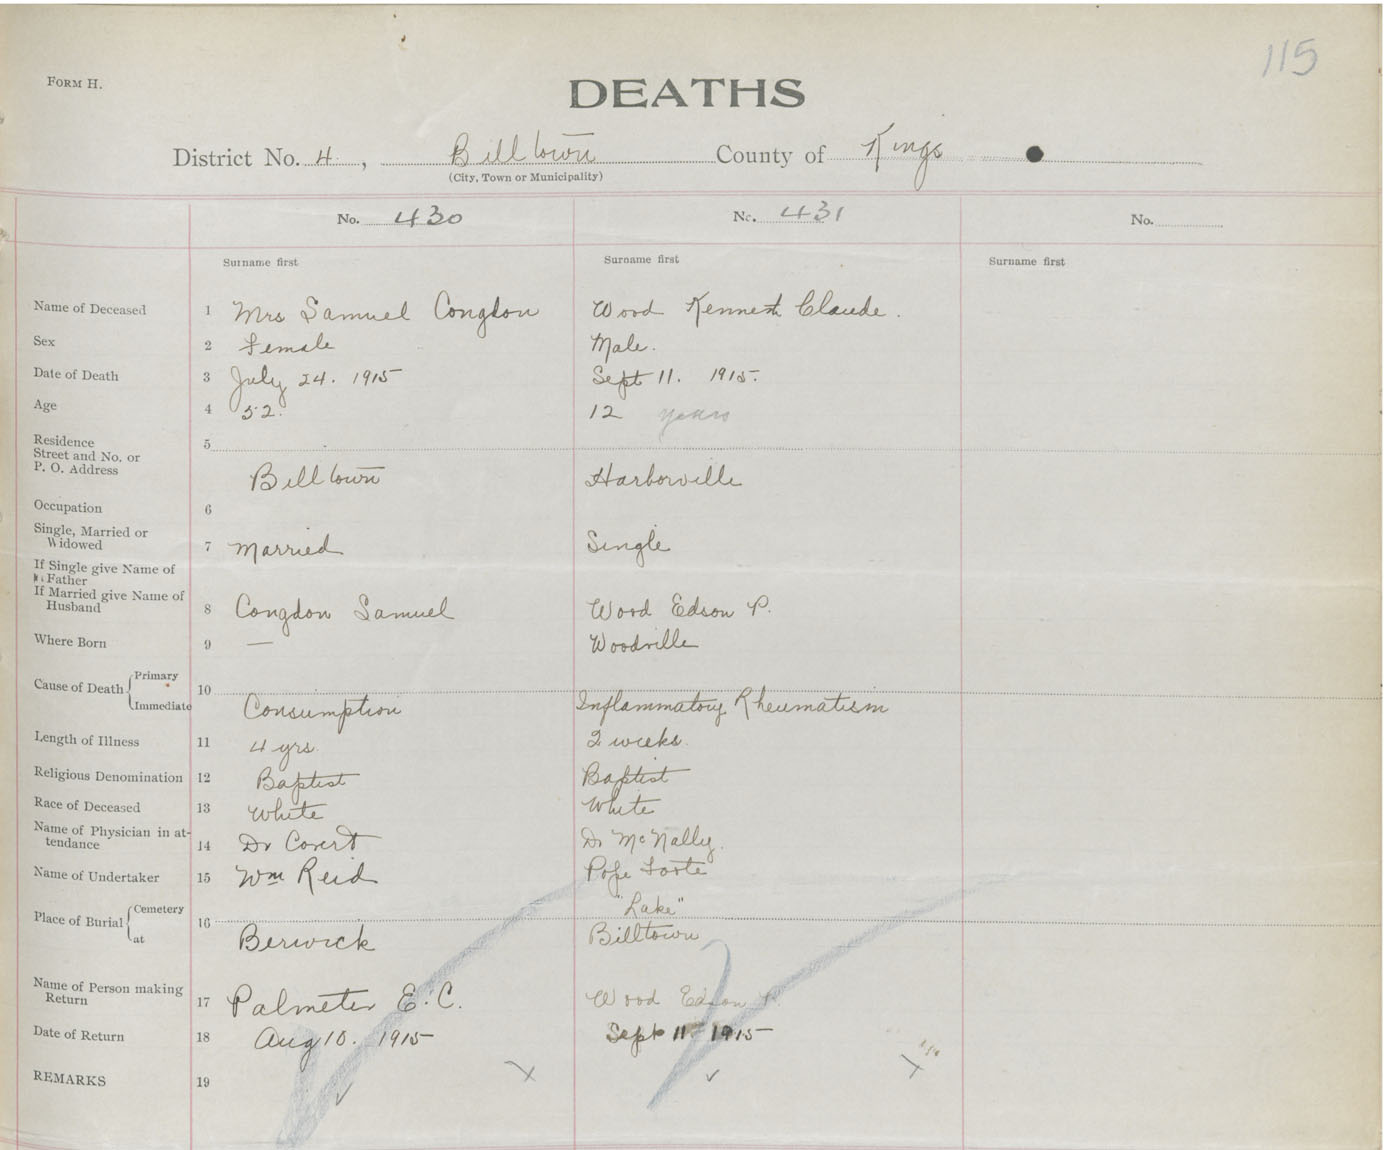 115
FORM H.
DEATHS
District No. 4, Billtown County of Kings
(City, Town or Municipality)
No. 430 No. 431 No.
Surname first Surname first Surname first
Name of Deceased 1 Mrs Samuel Congdon Wood Kenneth Claude.
Sex 2 Female Male.
Date of Death 3 July 24. 1915 Sept 11. 1915.
Age 4 52. 12 years
Residence 5
Street and No. or
P. O. Address Billtown Harborville
Occupation 6
Single, Married or
Widowed 7 Married Single
If Single give Name of
Father
If Married give Name of
Husband 8 Congdon Samuel Wood Edson P.
Where Born 9 — Woodville
Cause of Death Primary 10
Immediate Consumption Inflammatory Rheumatism
Length of Illness 11 4 yrs. 2 weeks.
Religious Denomination 12 Baptist Baptist
Race of Deceased 13 White White
Name of Physician in at-
tendance 14 Dr Covert Dr McNally.
Name of Undertaker 15 Wm Reid Pope Foote
Place of Burial Cemetery 16 "Lake"
at Berwick Billtown
Name of Person making
Return 17 Palmeter E. C. Wood Edson P.
Date of Return 18 Aug 10. 1915 Sept 11 1915
REMARKS 19